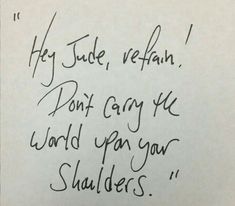 "
Hey Jude, refrain!
Don't carry the
World upon your
Shoulders."